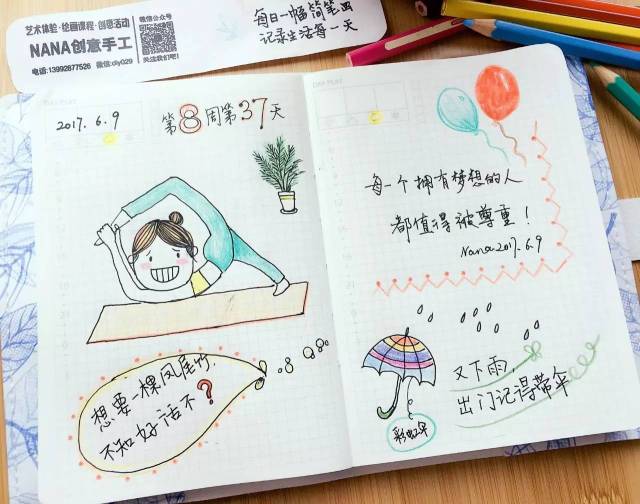 艺术体验·绘画课程·创意活动
NANA创意手工
电话:13992877526 微信:diy029
微信公众号
关注我们吧!
每日一幅简笔画
记录生活每一天
2017.6.9
第8周第37天
想要一棵凤尾竹.
不知好活不?
每一个拥有梦想的人
都值得被尊重!
Nana2017.6.9
又下雨,
出门记得带伞
彩虹伞